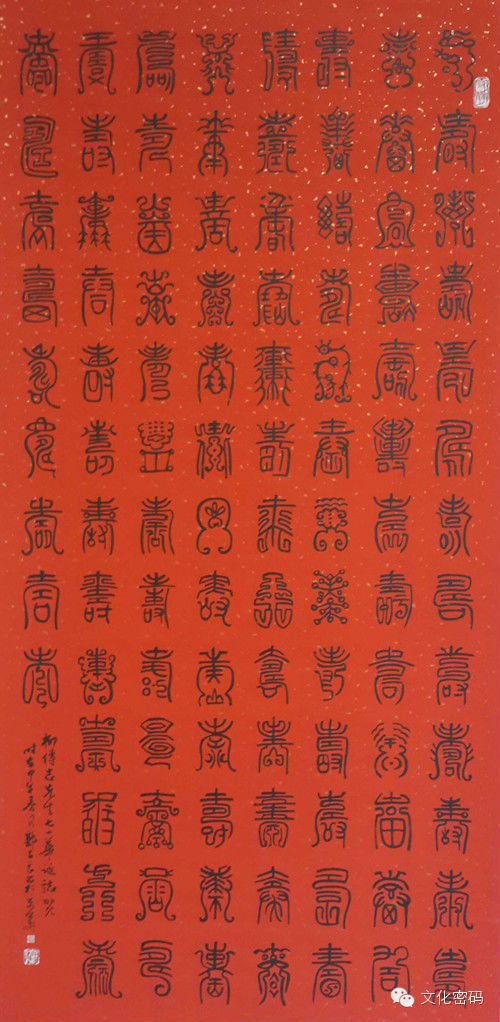 壽壽壽壽壽壽壽壽壽壽壽壽壽
壽壽壽壽壽壽壽壽壽壽壽壽壽
壽壽壽壽壽壽壽壽壽壽壽壽壽
壽壽壽壽壽壽壽壽壽壽壽壽壽
壽壽壽壽壽壽壽壽壽壽壽壽壽
壽壽壽壽壽壽壽壽壽壽壽壽壽
壽壽壽壽壽壽壽壽壽壽壽壽壽
壽壽壽壽壽壽壽壽壽
柳傳志先生七十華诞誌贺
时在甲午春
文化密码